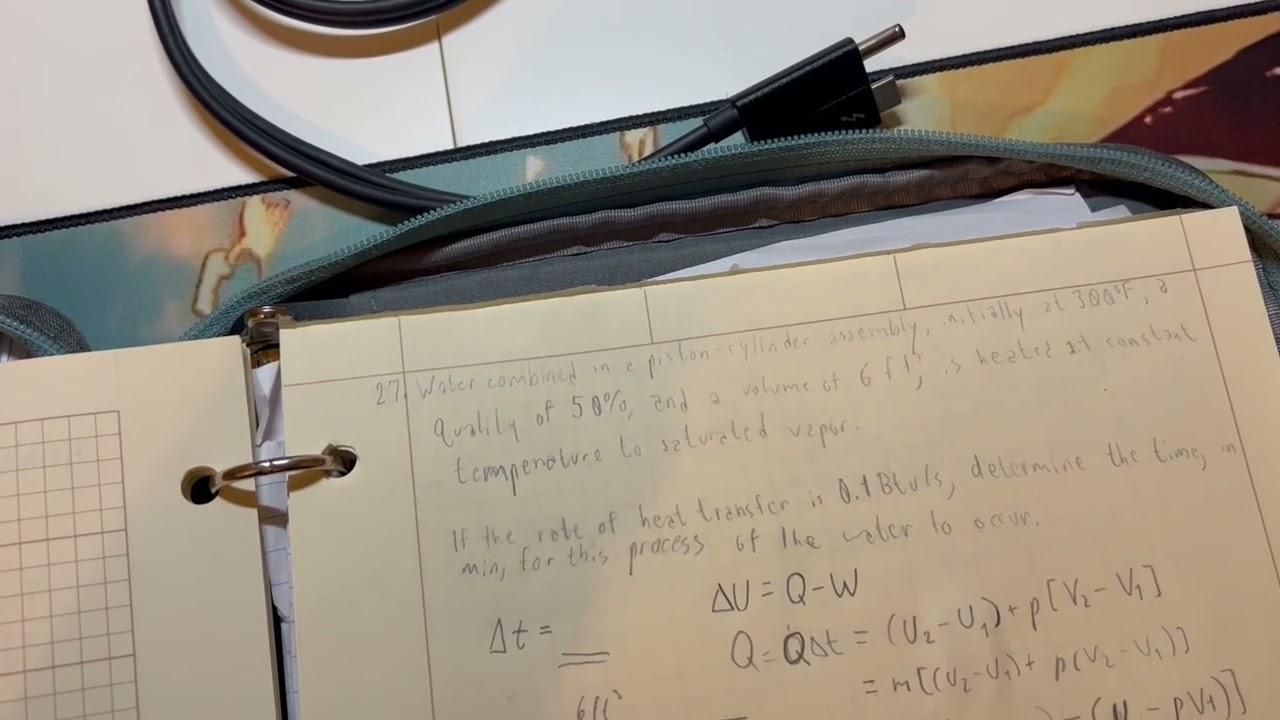 27. Water combined in a piston-cylinder assembly, initially at 300°F, a
quality of 50%, and a volume of 6 ft³, is heated at constant
temperature to saturated vapor.
If the rate of heat transfer is 0.1 Btu/s, determine the time, in
min, for this process of the water to occur.
ΔU = Q - W
Δt = __
Q = Q̇Δt = (U₂ - U₁) + p[V₂ - V₁]
= m[(U₂ - U₁) + p(V₂ - V₁)]
6ft³